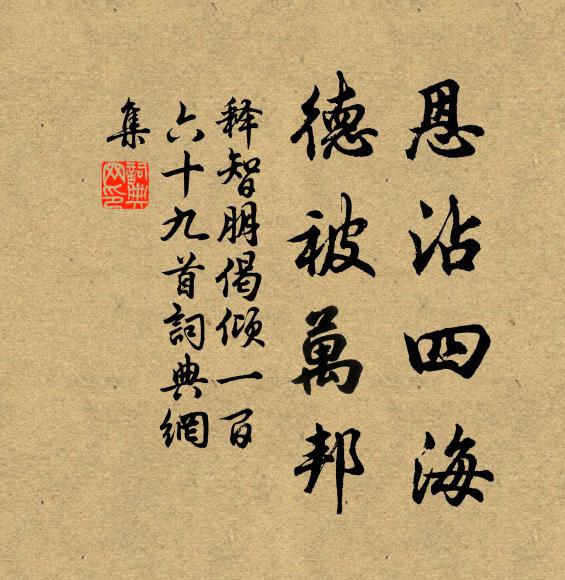 恩沾四海
德被萬邦
释智朋偈倾一百
六十九首詞典網
集
詞典網印